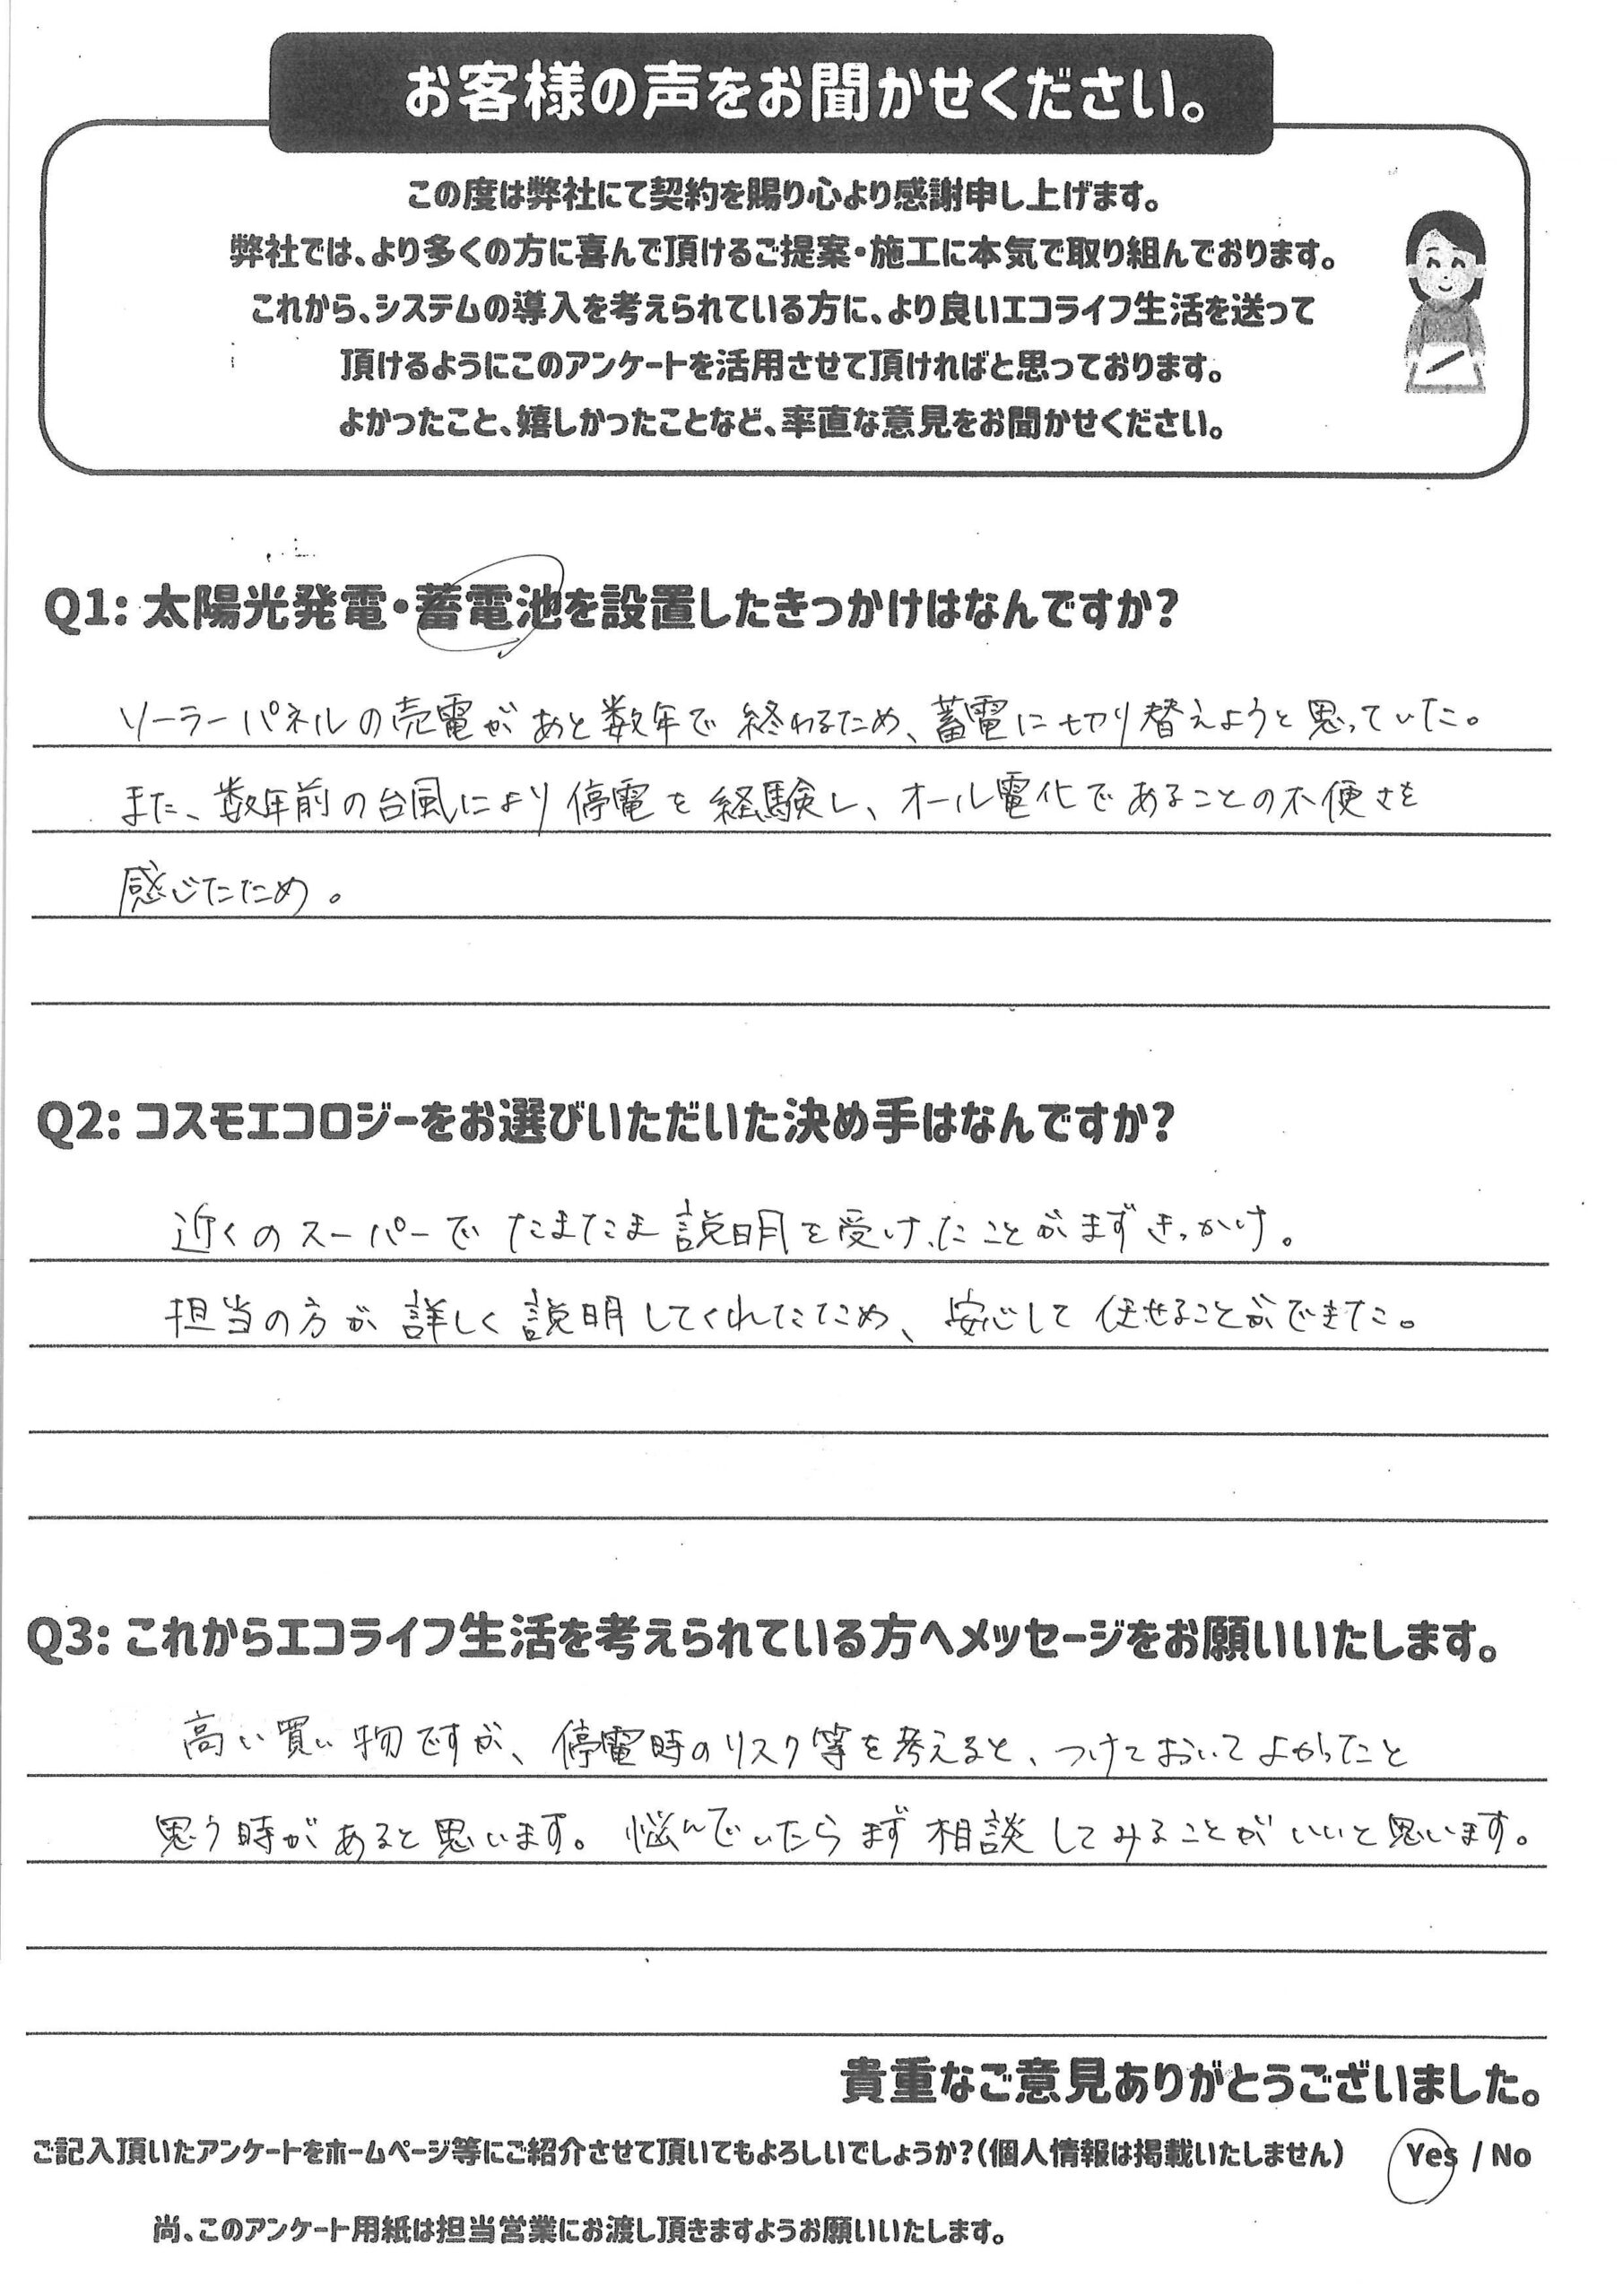 お客様の声をお聞かせください。
この度は弊社にて契約を賜り心より感謝申し上げます。
弊社では、より多くの方に喜んで頂けるご提案・施工に本気で取り組んでおります。
これから、システムの導入を考えられている方に、より良いエコライフ生活を送って
頂けるようにこのアンケートを活用させて頂ければと思っております。
よかったこと、嬉しかったことなど、率直な意見をお聞かせください。
Q1: 太陽光発電・蓄電池を設置したきっかけはなんですか?
ソーラーパネルの売電があと数年で終わるため、蓄電に切り替えようと思っていた。
また、数年前の台風により停電を経験し、オール電化であることの不便さを
感じたため。
Q2: コスモエコロジーをお選びいただいた決め手はなんですか?
近くのスーパーでたまたま説明を受けたことがまずきっかけ。
担当の方が詳しく説明してくれたため、安心して任せることができた。
Q3: これからエコライフ生活を考えられている方へメッセージをお願いいたします。
高い買い物ですが、停電時のリスク等を考えると、つけておいてよかったと
思う時があると思います。悩んでいたらまず相談してみることがいいと思います。
貴重なご意見ありがとうございました。
ご記入頂いたアンケートをホームページ等にご紹介させて頂いてもよろしいでしょうか?(個人情報は掲載いたしません) Yes / No
尚、このアンケート用紙は担当営業にお渡し頂きますようお願いいたします。